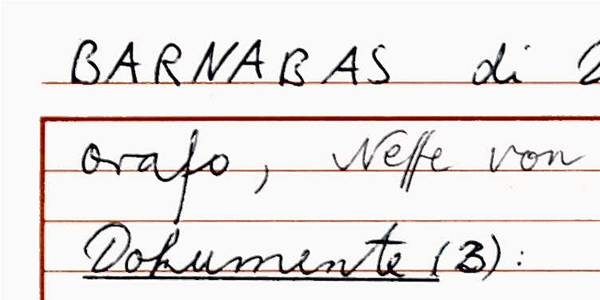 BARNABAS di
orafo, Neffe von
Dokumente (3):